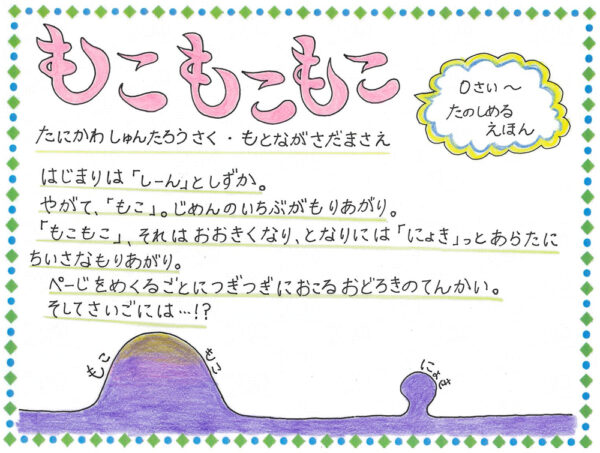 もこ もこもこ
0さい〜
たのしめる
えほん
たにかわしゅんたろうさく・もとながさだまさえ
はじまりは「しーん」としずか。
やがて、「もこ」。じめんのいちぶがもりあがり。
「もこもこ」、それはおおきくなり、となりには「にょき」っとあらたに
ちいさなもりあがり。
ぺーじをめくるごとにつぎつぎにおこるおどろきのてんかい。
そしてさいごには…!?
もこ
もこ
にょき